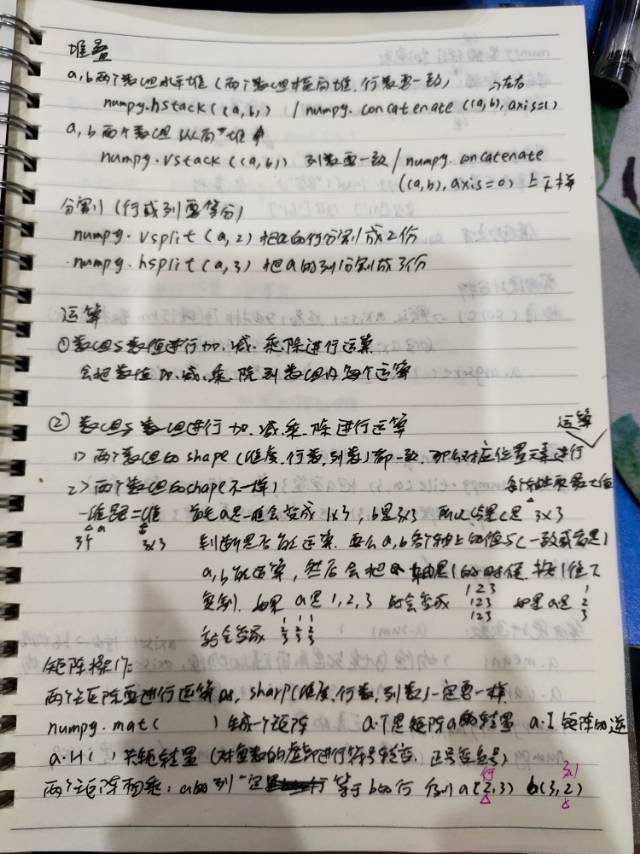 堆叠
a,b两个数组水平堆(两个数组横向堆,行数要一致) →左右
numpy.hstack((a,b,)) / numpy.concatenate((a,b),axis=1)
a,b两个数组纵向堆
numpy.vstack((a,b)) 列数要一致/numpy.concatenate
((a,b),axis=0) 上下堆
分割(行或列要等分)
numpy.vsplit(a,2) 把a的行分割成2份
numpy.hsplit(a,3) 把a的列分割成3份
运算
①数组与数值进行加、减、乘、除进行运算
会把数值加、减、乘、除到数组内每个运算
②数组与数组进行加、减、乘、除进行运算 运算
1)两个数组的shape(维度,行数,列数)都一致,那么对应位置元素进行
2)两个数组的shape不一样) 各个轴取最大值
一维跟二维 首先a是一维会变成1x3,b是3x3 所以结果c是 3x3
3个 3x3 判断是否能运算,要么a,b各个轴上的值与(一致或者是)
a,b能运算,然后会把 轴是1的时候,把1值
复制,如果 a是1,2,3 则会变成 1 2 3 如果a是 1
1 2 3 2
1 2 3 3
就会变成 1 1 1
2 2 2
3 3 3
矩阵操作:
两个矩阵要进行运算的,sharp(维度,行数,列数)一定要一样
numpy.mat( ) 生成一个矩阵 a.T是矩阵a的转置 a.I 矩阵的逆
a.H( ) 共轭转置(对复数的虚部进行符号转变,正号变负号)
两个矩阵相乘:a的列一定要等于b的行 例如 a(2,3) b(3,2)
行 列